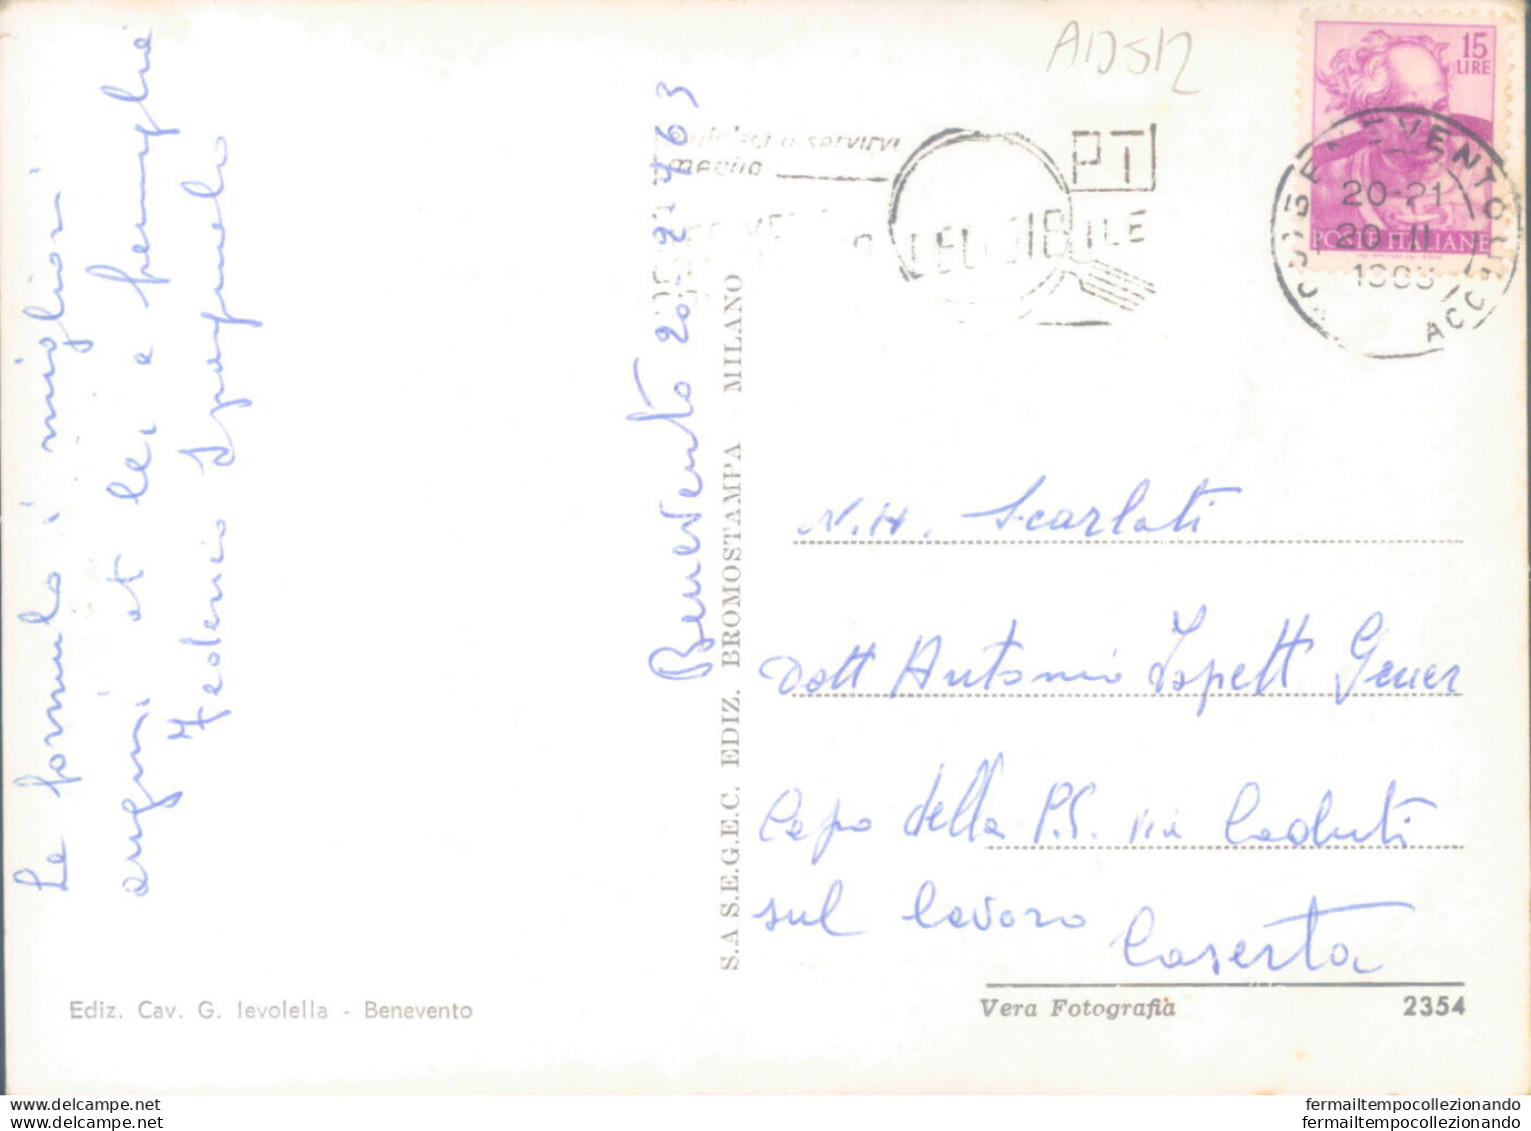 Le formulo i migliori
auguri at lei e famiglia
Federico Spagnuolo
Benevento 20-
A1D512
15
LIRE
POSTE ITALIANE
BENEVENTO
20-21
20 II
servirvi
meglio
PT
LEGGIBILE
N.H. Scarlati
Dott Antonio Ispett Gener
Capo della P.S. via Caduti
sul lavoro
Caserta
S.A S.E.G.E.C. EDIZ. BROMOSTAMPA - MILANO
Ediz. Cav. G. Ievolella - Benevento
Vera Fotografia
2354
fermailtempocollezionando
fermailtempocollezionando
fermailtempocollezionando
fermailtempocollezionando